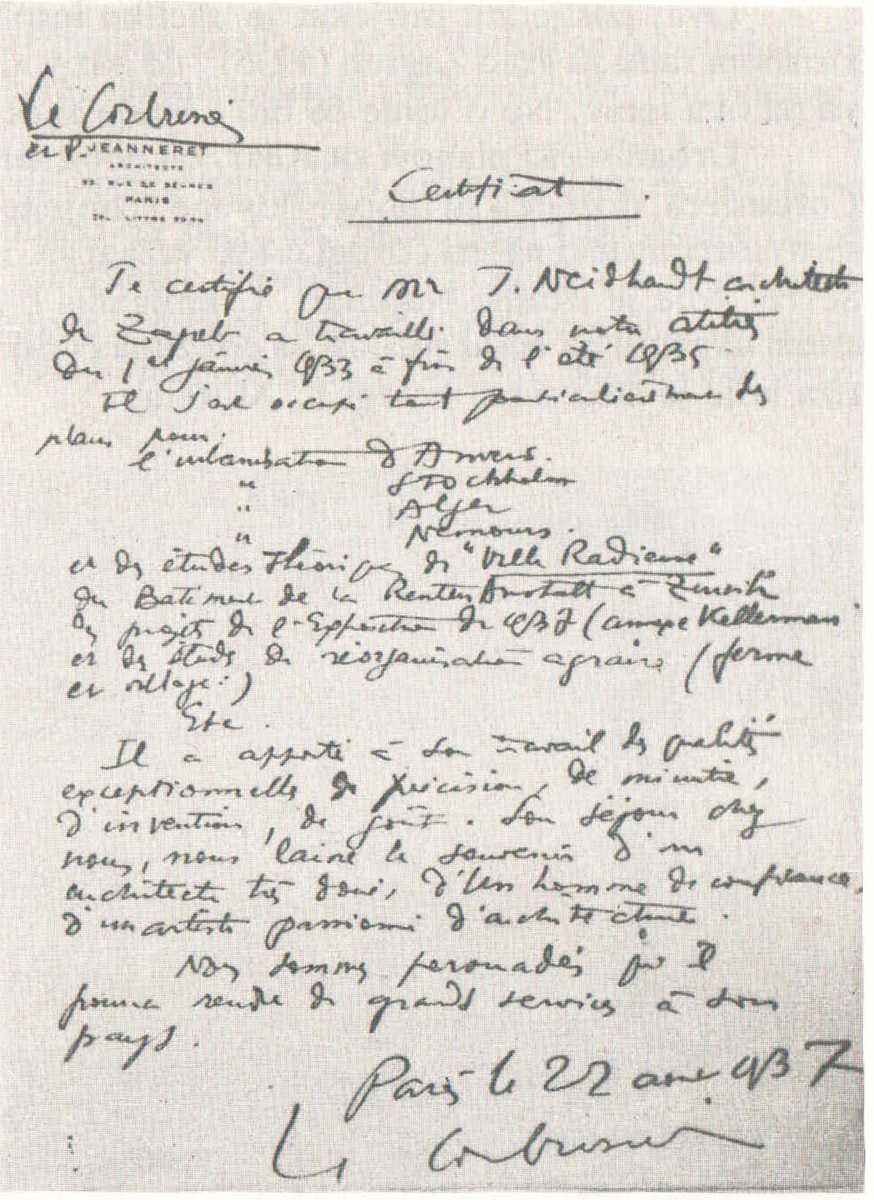 Le Corbusier
et P. JEANNERET
ARCHITECTES
35, RUE DE SÈVRES
PARIS
TÉL. LITTRÉ
Certificat.
Je certifie que Mr J. Neidhardt architecte
de Zagreb a travaillé dans notre atelier
du 1er janvier 1933 à fin de l'été 1935
Il s'est occupé tout particulièrement des
plans pour:
l'urbanisation d'Anvers.
" Stockholm
" Alger
" Nemours.
et des études théoriques de "Ville Radieuse"
du Batiment de la Rentenanstalt à Zurich
des projets de l'Exposition de 1937 (annexe Kellermann
et des études de réorganisation agraire (ferme
et village:)
Etc.
Il a apporté à son travail des qualités
exceptionnelles de précision, de minutie,
d'invention, de goût. Son séjour chez
nous, nous laisse le souvenir d'un
architecte très doué, d'un homme de confiance,
d'un artiste passionné d'architecture.
Nous sommes persuadés qu'il
pourra rendre de grands services à son
pays.
Paris le 22 1937
Le Corbusier